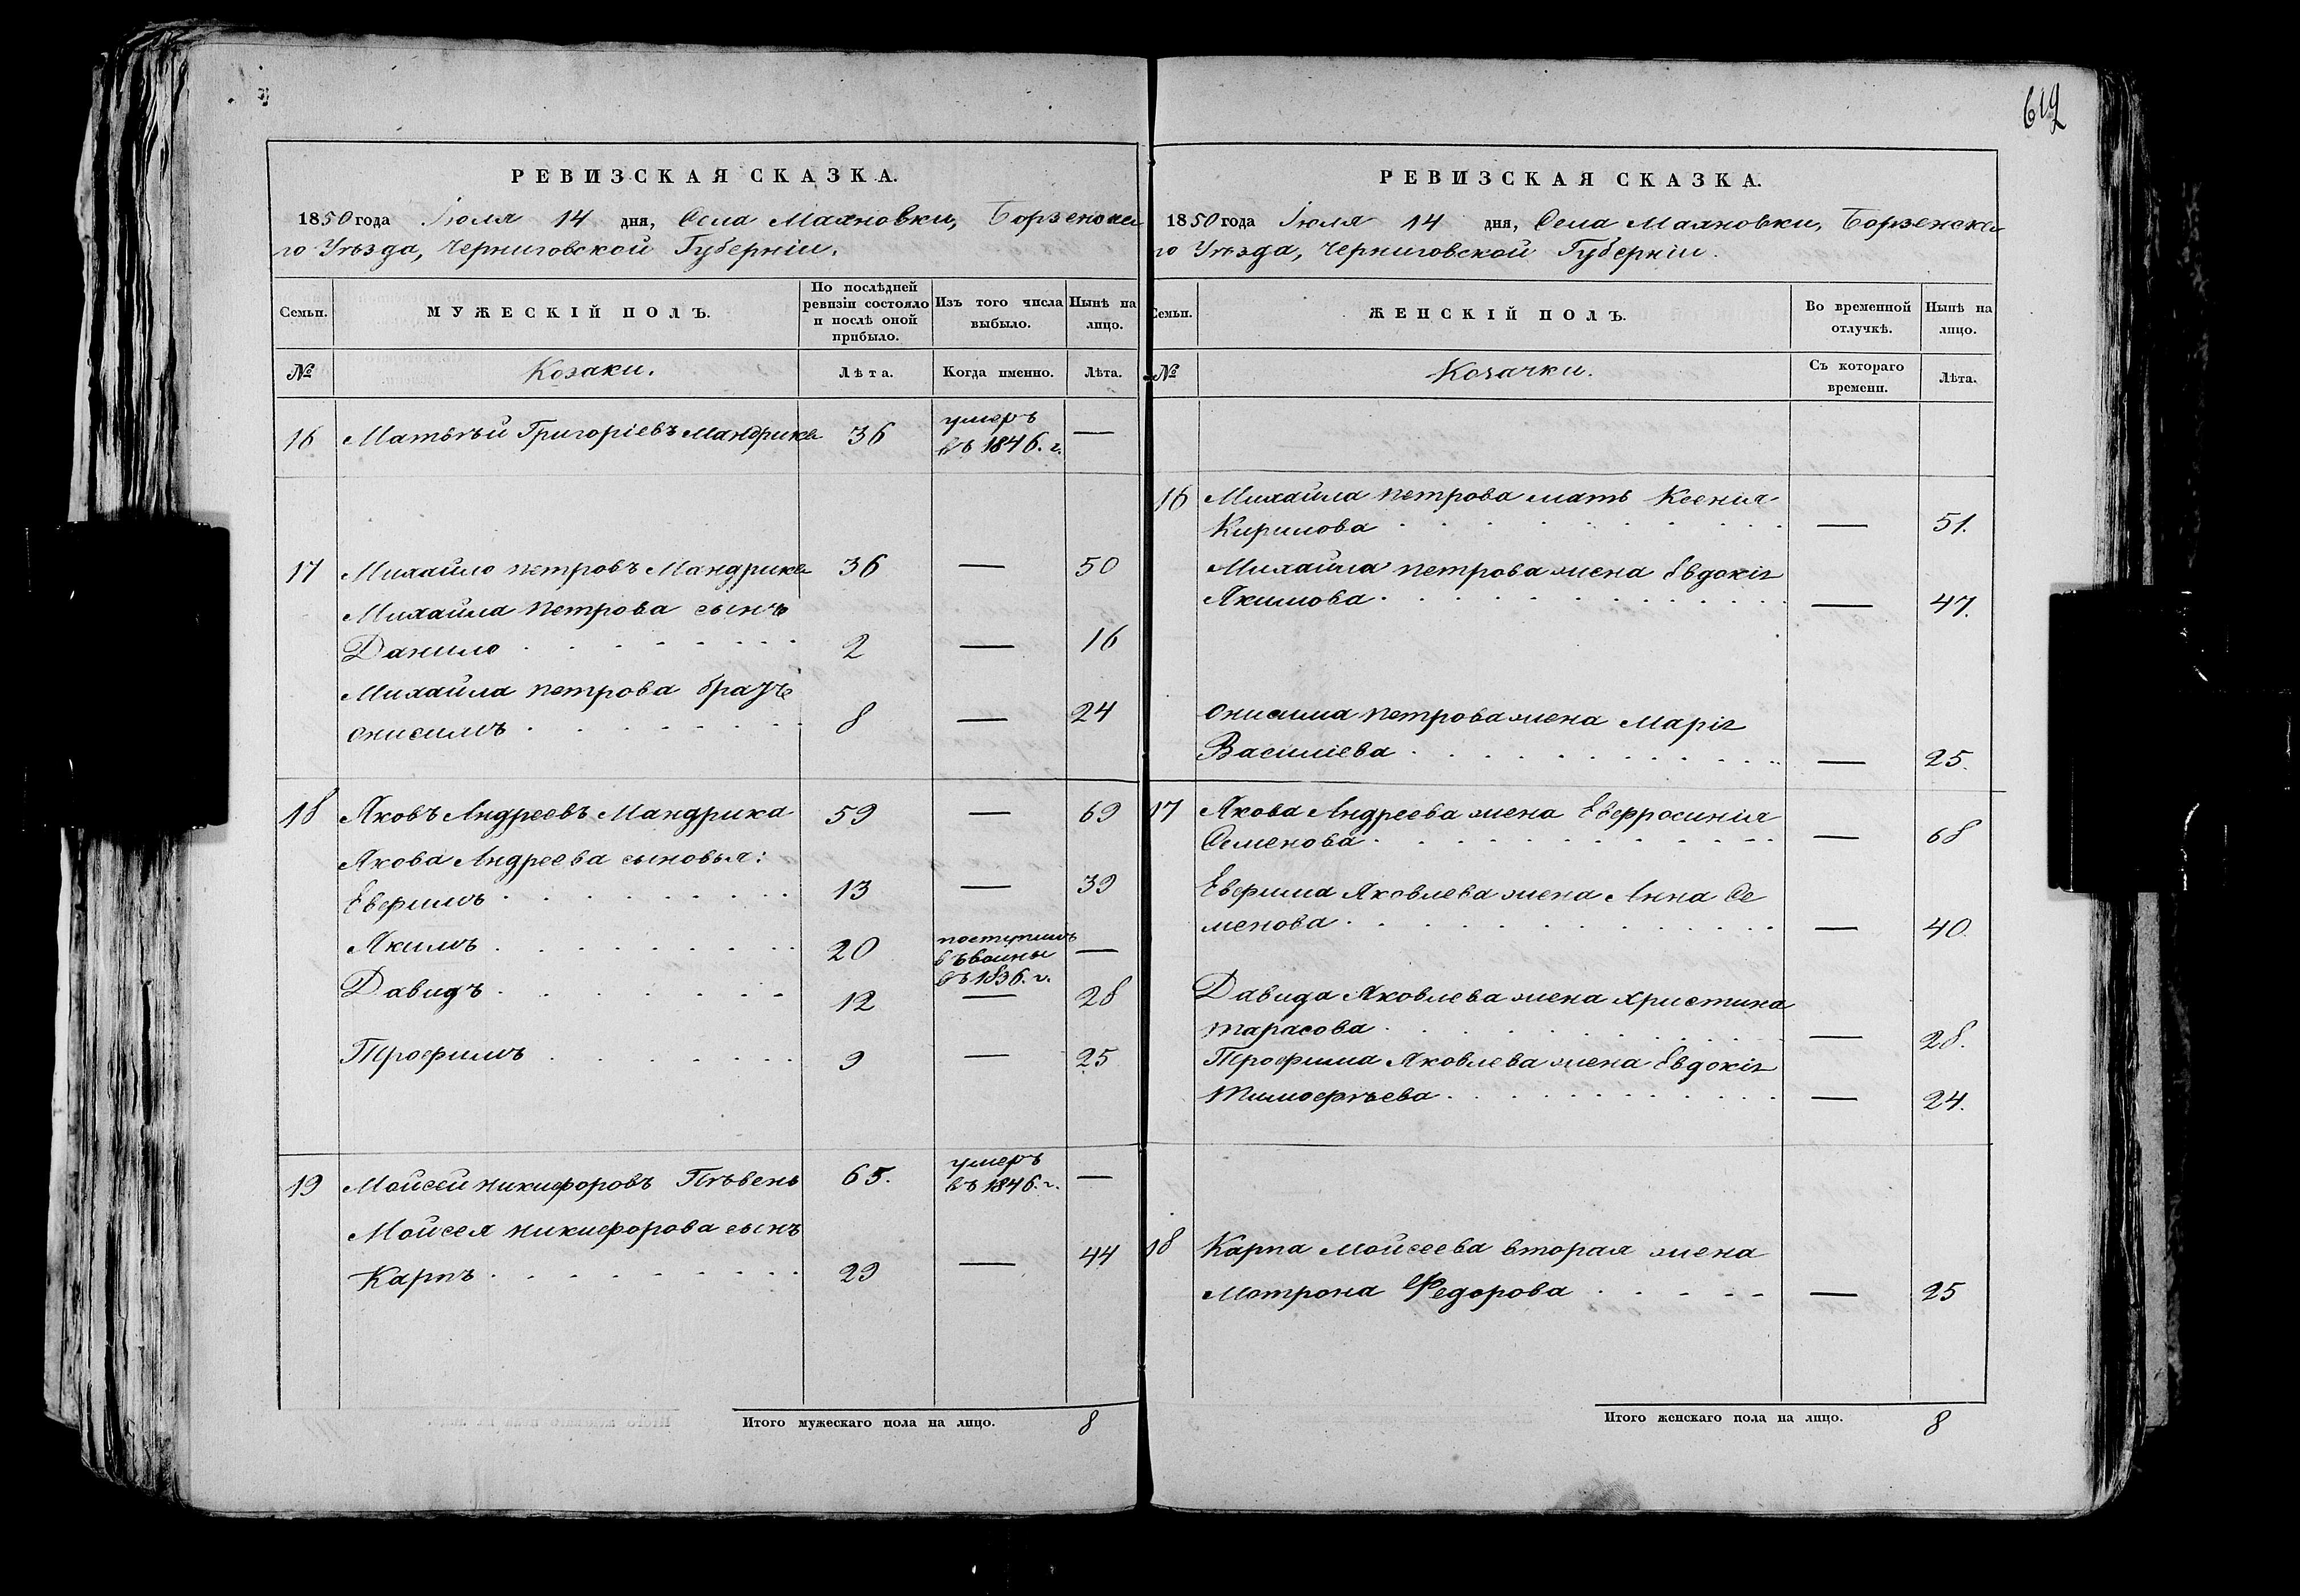 612
РЕВИЗСКАЯ СКАЗКА.
1850 года Іюля 14 дня, Села Маяновки, Борзенска
го Уѣзда, Черниговской Губерніи.
Семьи.
МУЖЕСКІЙ ПОЛЪ.
По послѣдней ревизіи состояло и послѣ оной прибыло.
Изъ того числа выбыло.
Нынѣ на лицо.
№
Козаки.
Лѣта.
Когда именно.
Лѣта.
16 Матвѣй Григоріевъ Мандрика 36 умеръ въ 1846. г. —
17 Михайло петровъ Мандрика 36 — 50
Михайла петрова сынъ
Данило 2 — 16
Михайла петрова братъ
Онисимъ 8 — 24
18 Яковъ Андреевъ Мандрика 59 — 69
Якова Андреева сыновья:
Евфимъ 13 — 39
Якимъ 20 поступилъ въ воины въ 1836. г. —
Давидъ 12 — 28
Трофимъ 9 — 25
19 Мойсей никифоровъ Пѣвень 65. умеръ въ 1846. г. —
Мойсея никифорова сынъ
Карпъ 29 — 44
Итого мужескаго пола на лицо. 8
РЕВИЗСКАЯ СКАЗКА.
1850 года Іюля 14 дня, Села Маяновки, Борзенска
го Уѣзда, Черниговской Губерніи.
Семьи.
ЖЕНСКІЙ ПОЛЪ.
Во временной отлучкѣ.
Нынѣ на лицо.
№
Козачки.
Съ котораго времени.
Лѣта.
16 Михайла петрова мать Ксенія
Кирилова — 51.
Михайла петрова жена Евдокія
Якимова — 47.
Онисима петрова жена Марія
Василіева — 25.
17 Якова Андреева жена Евфросинія
Семенова — 68
Евфима Яковлева жена Анна Се
менова — 40.
Давида Яковлева жена Христина
тарасова — 28.
Трофима Яковлева жена Евдокія
Тимофѣева — 24.
18 Карпа Мойсеева вторая жена
Мотрона Федорова — 25
Итого женскаго пола на лицо. 8